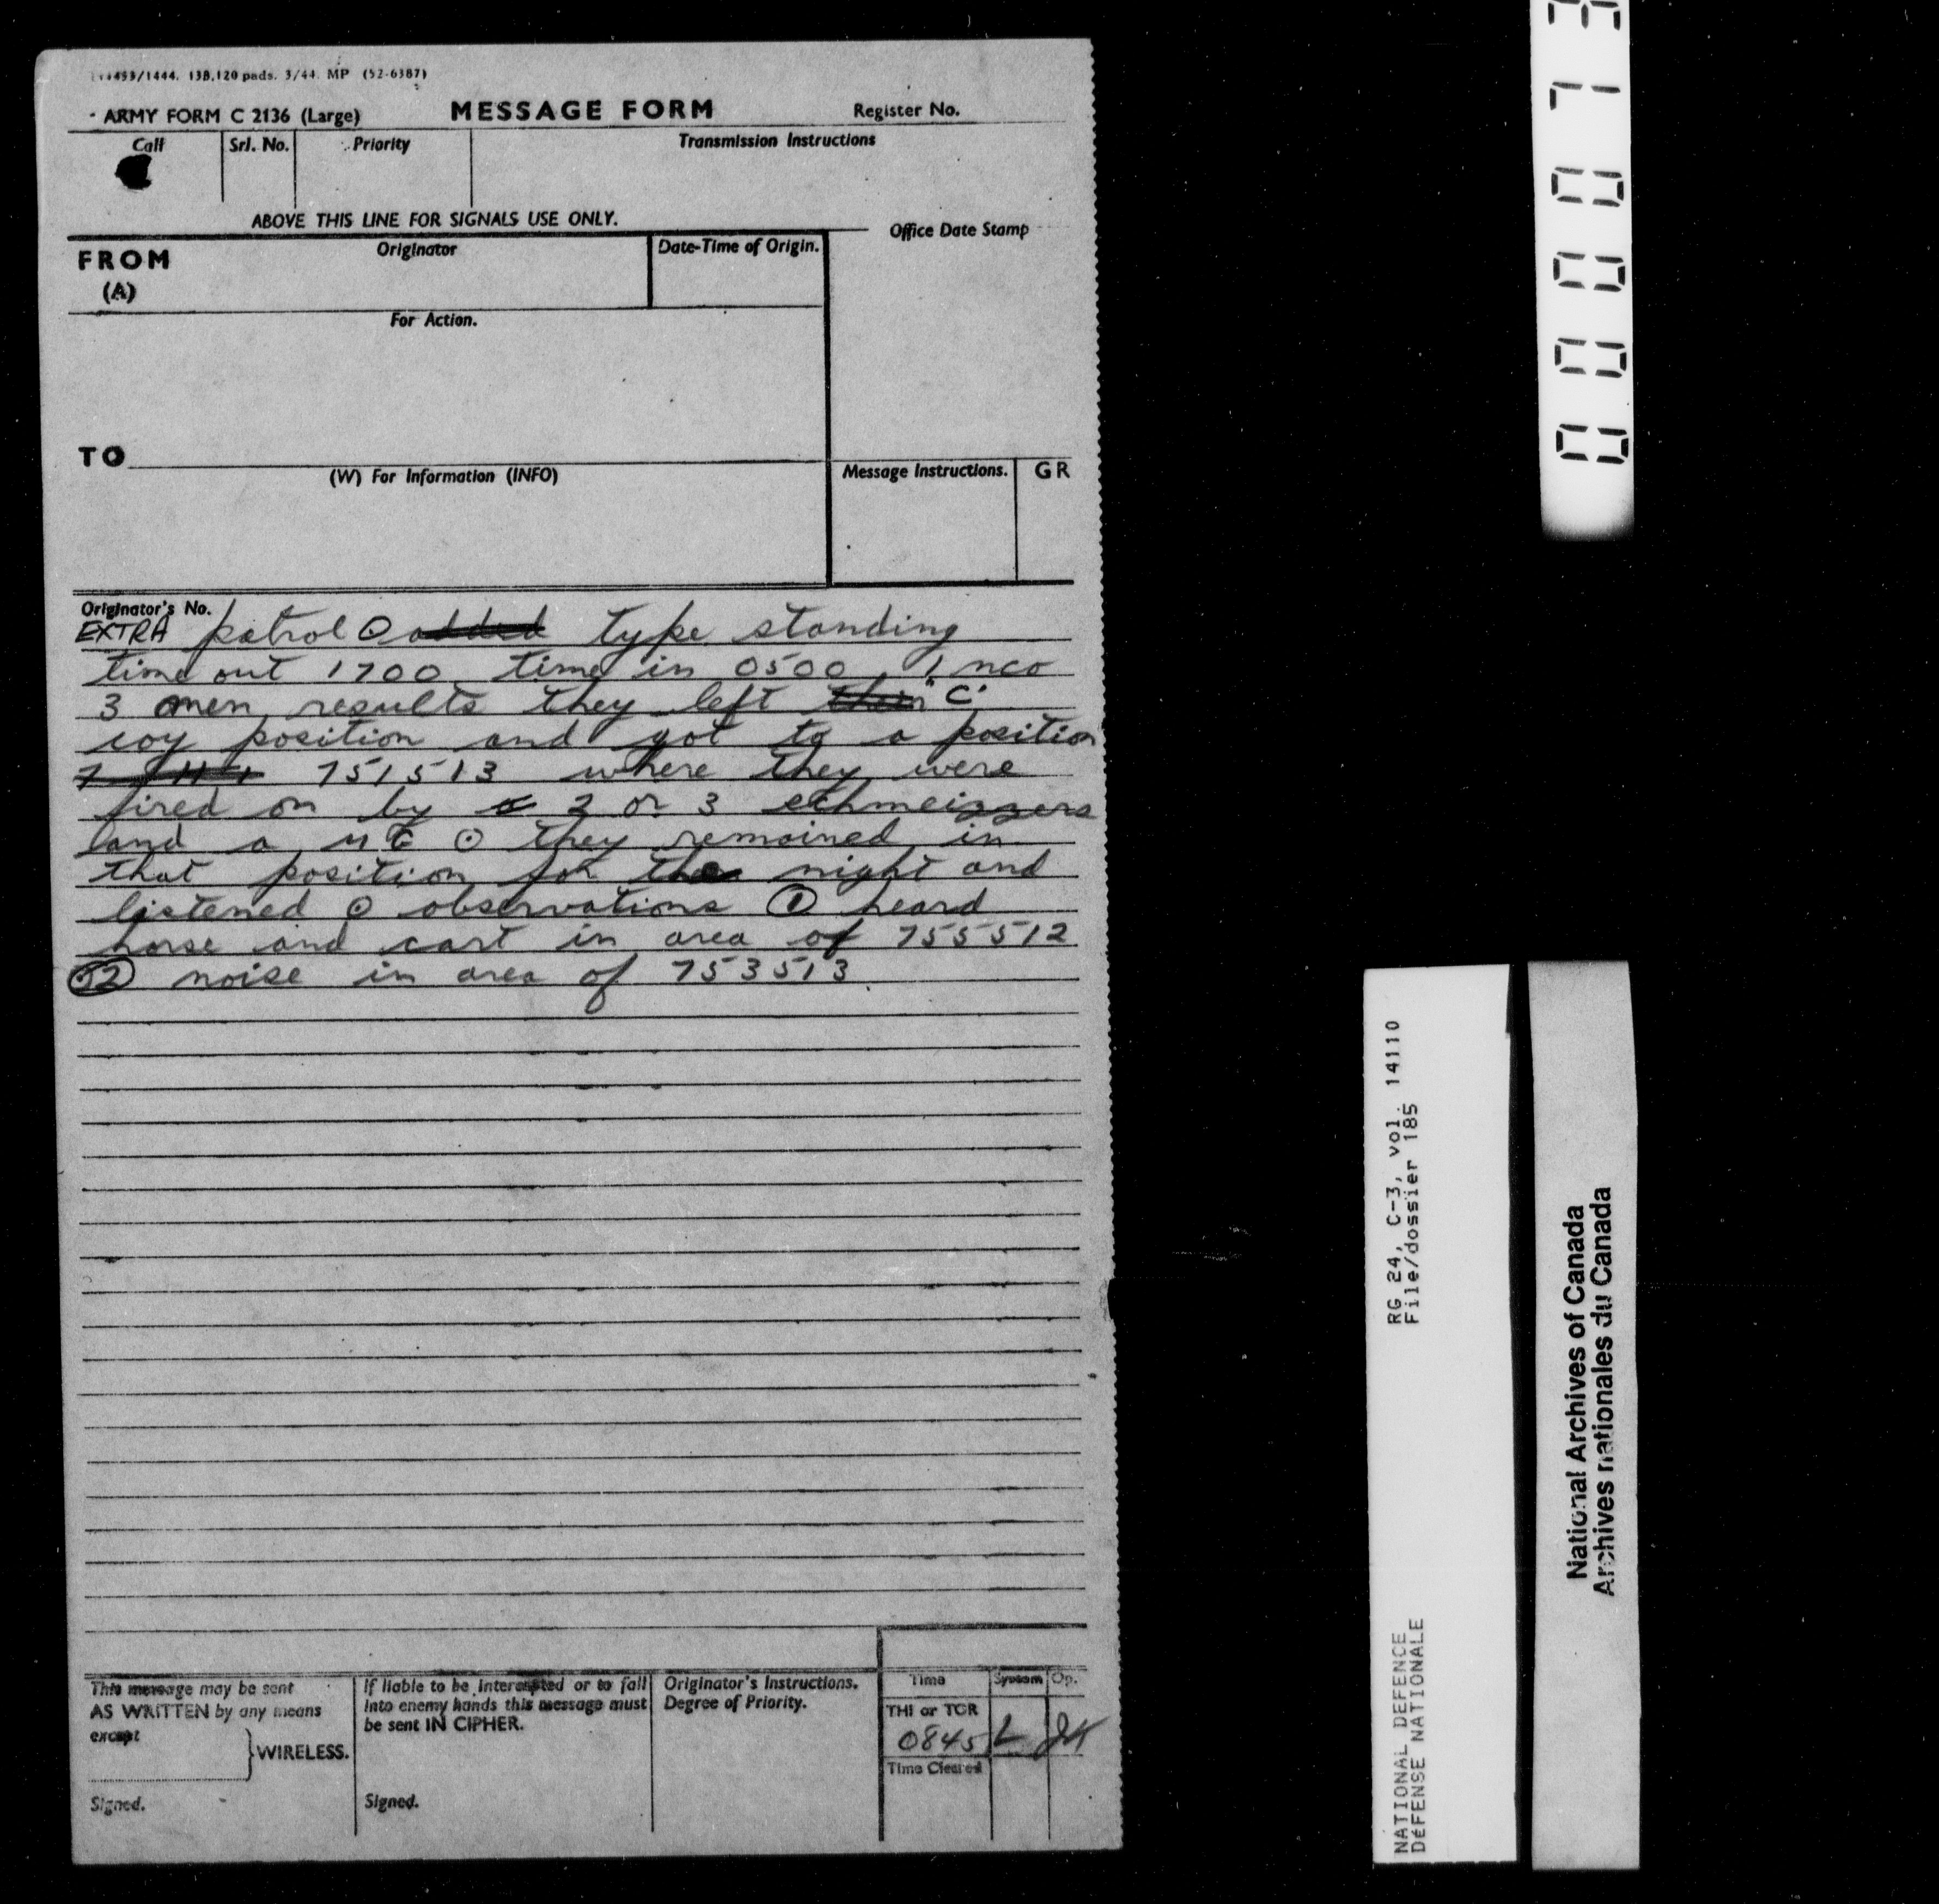 493/1444. 138,120 pads. 3/44. MP (52-6387)
ARMY FORM C 2136 (Large) MESSAGE FORM Register No.
Call Srl. No. Priority Transmission Instructions
ABOVE THIS LINE FOR SIGNALS USE ONLY.
Office Date Stamp
FROM Originator Date-Time of Origin.
(A)
For Action.
TO
(W) For Information (INFO) Message Instructions. GR
Originator's No.
EXTRA patrol ⊙ added type standing
time out 1700 time in 0500 1 nco
3 men results they left their "C"
coy position and got to a position
751513 where they were
fired on by 2 or 3 schmeizzers
and a MG ⊙ they remained in
that position for the night and
listened ⊙ observations ① heard
horse and cart in area of 755512
② noise in area of 753513
This message may be sent
AS WRITTEN by any means
except
WIRELESS.
Signed.
If liable to be intercepted or to fall
into enemy hands this message must
be sent IN CIPHER.
Signed.
Originator's Instructions.
Degree of Priority.
Time System Op.
THI or TOR
0845 L
Time Cleared
0000713
RG 24, C-3, vol. 14110
File/dossier 185
NATIONAL DEFENCE
DéFENSE NATIONALE
National Archives of Canada
Archives nationales du Canada